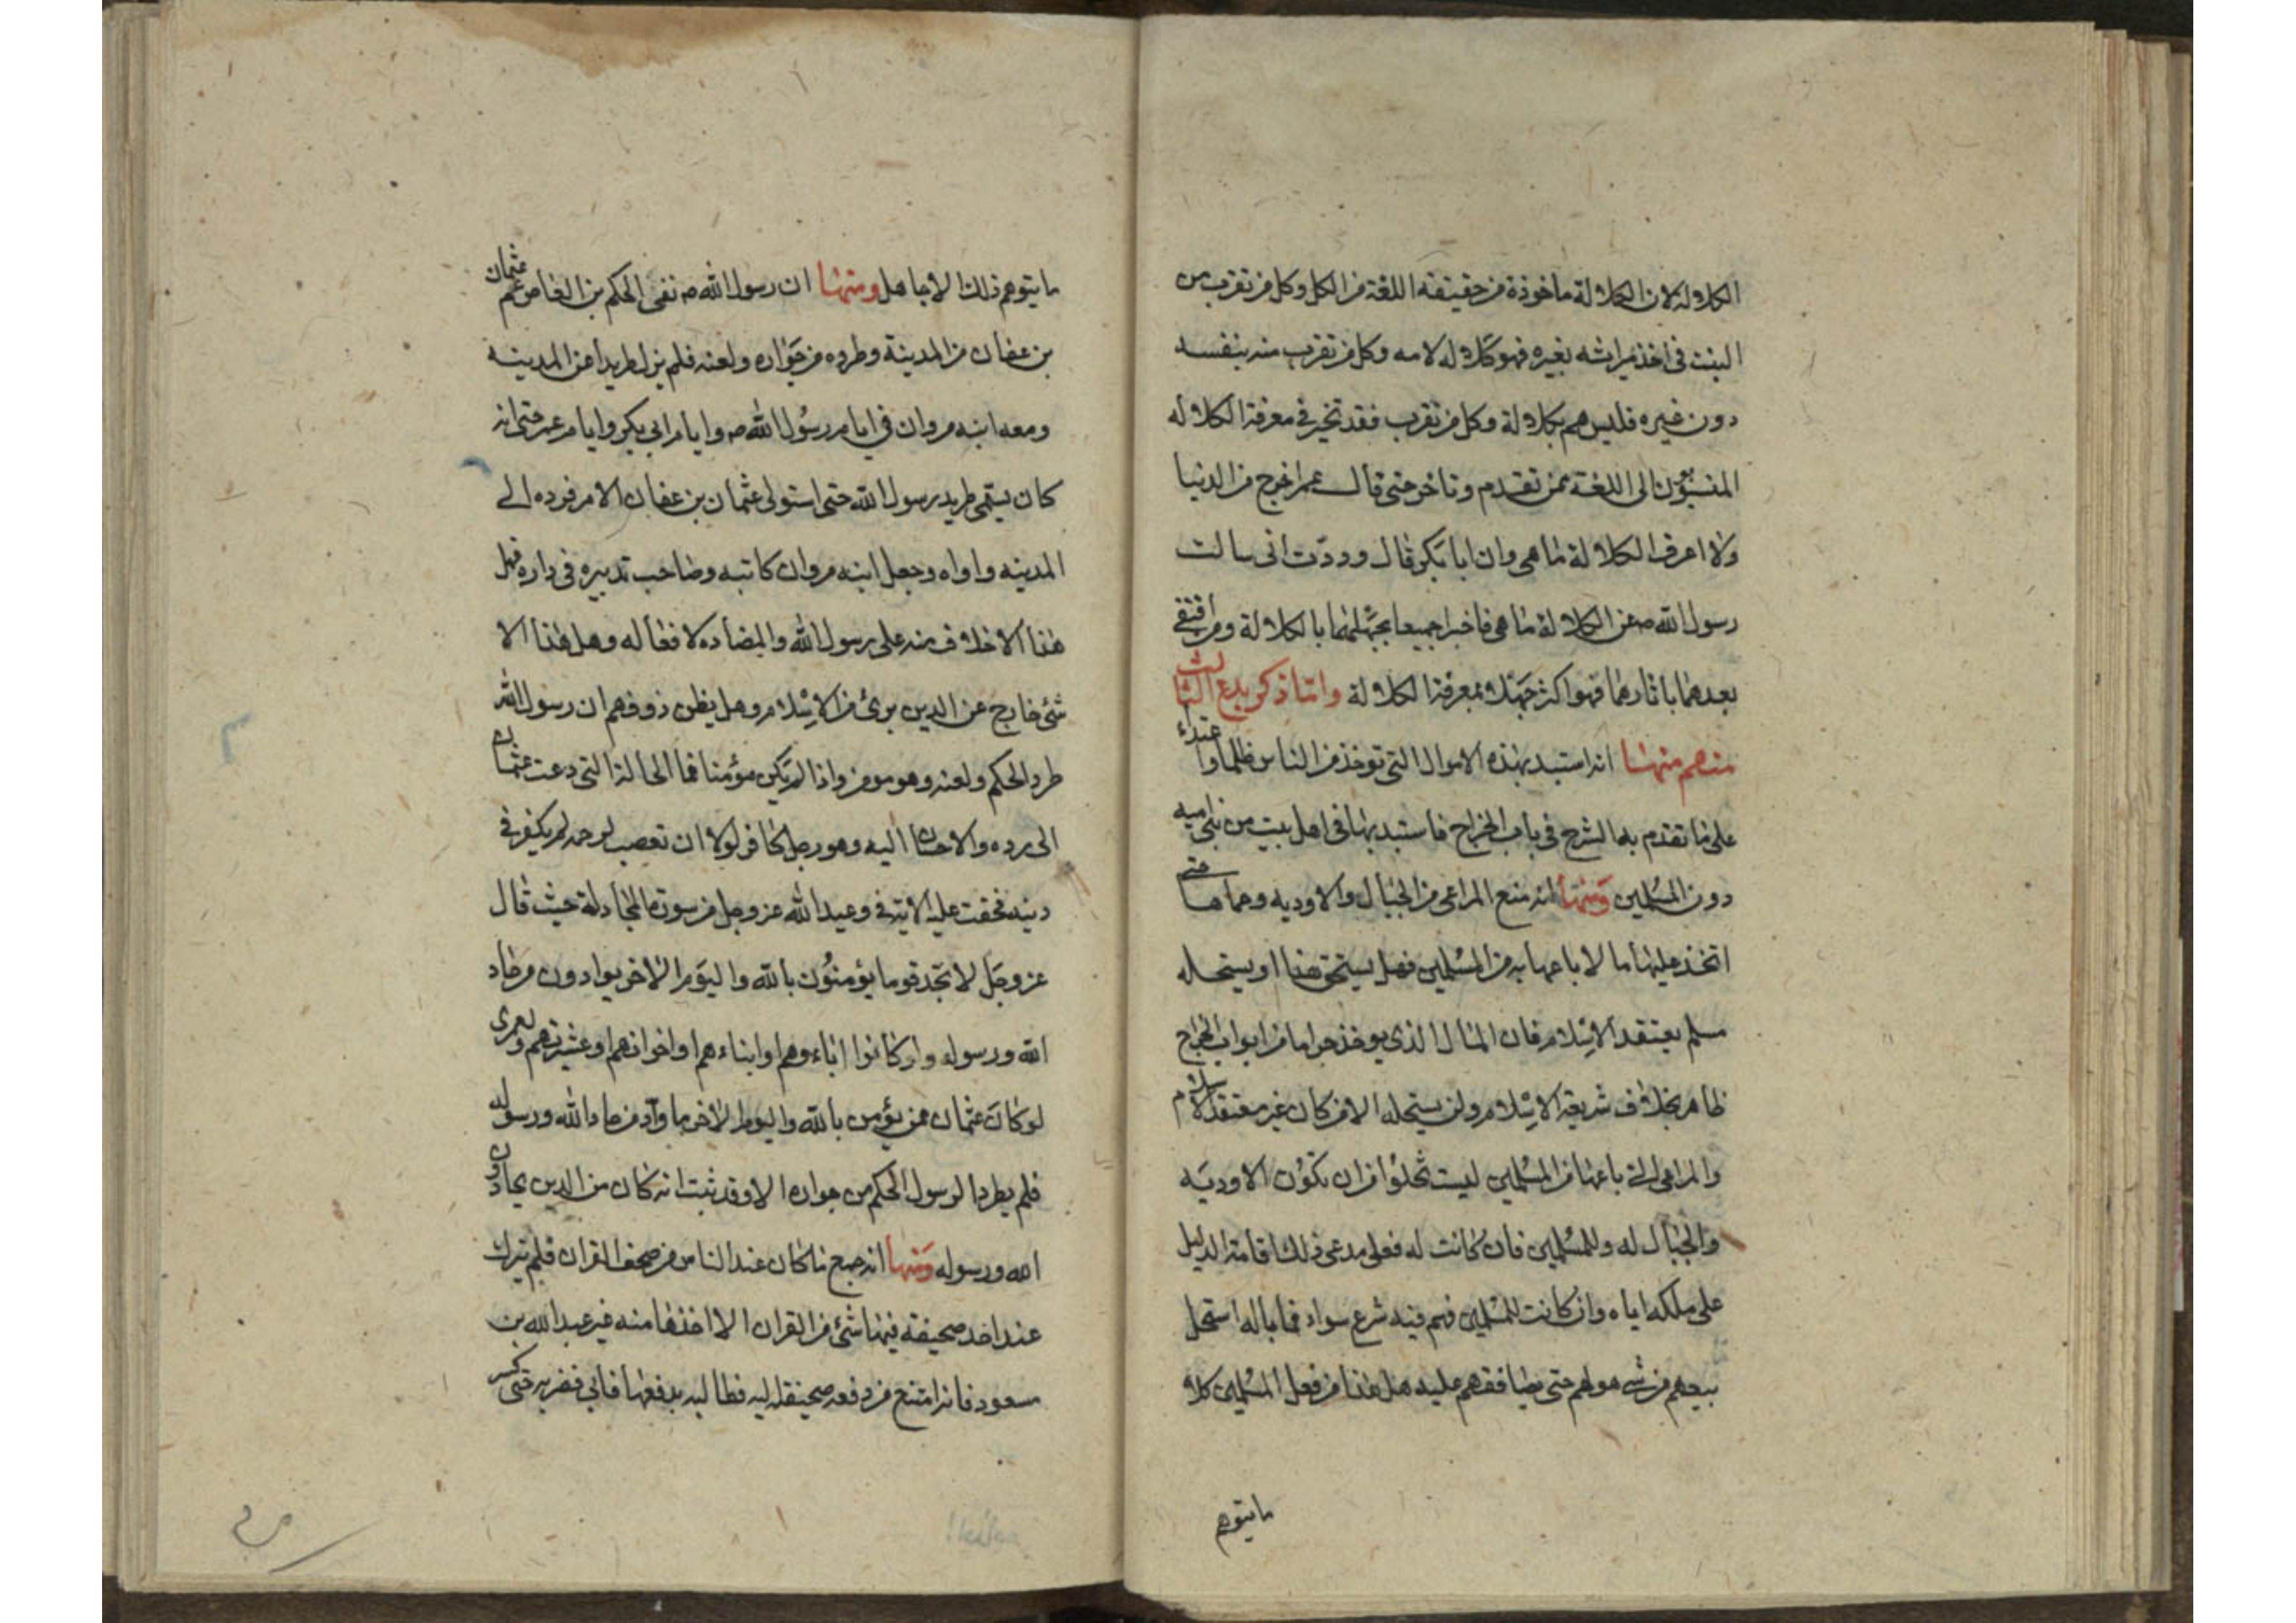 الكلالة لان الكلالة ماخوذة من حقيقته اللغة من الكل وكل من تقرب من
البنت فى اخذ ميراثه بغيره فهو كلالة لامه وكل من تقرب منه بنفسه
دون غيره فليس هم بكلالة وكل من تقرب فقد تحير فى معرفة الكلاله
المنسبون الى اللغة ممن تقدم وتاخر حتى قال عمر اخرج من الدنيا
ولا اعرف الكلالة ما هى وان ابا بكر قال وددت انى سالت
رسول الله ص عن الكلالة ما هى فاخبرا جميعا بجهلهما بالكلالة ومن اقتفى
بعدهما باثارهما فهو اكثر جهلا بمعرفة الكلالة واما ذكر بدع الثالث
منهم منها انه استبد بهذه الاموال التى توخذ من الناس ظلما واعتداء
على ما تقدم به الشرح فى باب الخراج فاستبد بها فى اهل بيت من بنى اميه
دون المسلمين ومنها انه منع المراعى من الجبال والاوديه وحماها حتى
اتخذ عليها مالا باعها به من المسلمين فهل يستحق هذا او يستحله
مسلم يعتقد الاسلام فان المال الذى يوخذ حراما من ابواب الخراج
ظاهر بخلاف شريعة الاسلام ولن يستحله الا من كان غير معتقد الاسلام
والمراعى التى باعها من المسلمين ليست تخلوا من ان تكون الاوديه
والجبال له وللمسلمين فان كانت له فعلى مدعى ذلك اقامة الدليل
على ملكه اياه وان كانت للمسلمين فهم فيه شرع سواد فما باله استحل
بيعهم من شى هو لهم حتى يصافقهم عليه هل هذا من فعل المسلمين كلا
مايتوهم
مايتوهم ذلك الا جاهل ومنها ان رسول الله ص نفى الحكم بن العاص عم عثمان
بن عفان من المدينة وطرده من جواره ولعنه فلم يزل طريدا عن المدينه
ومعه ابنه مروان فى ايام رسول الله ص وايام ابى بكر وايام عمر حتى انه
كان يسمى طريد رسول الله حتى استولى عثمان بن عفان الامر فرده الى
المدينه واواه وجعل ابنه مروان كاتبه وصاحب تدبيره فى داره فهل
هذا الا خلاف منه على رسول الله والمضاده لافعاله وهل هذا الا
شئ خارج عن الدين برئ من الاسلام وهل يظن ذو فهم ان رسول الله
طرد الحكم ولعنه وهو مومن واذا لم يكن مؤمنا فما الحالة التى دعت عثمان
الى رده والاحسان اليه وهو رجل كافر لولا ان تعصب لرحمه لم يكفر فى
دينه فحقت عليه الاية فى وعيد الله عز وجل من سورة المجادلة حيث قال
عز وجل لا تجد قوما يؤمنون بالله واليوم الاخر يوادون من حاد
الله ورسوله ولو كانوا اباءوهم او ابناءهم او اخوانهم او عشيرتهم ولعمرى
لو كان عثمان ممن يؤمن بالله واليوم الاخر ما وآد من حاد الله ورسوله
فلم يطرد الرسول الحكم من جواره الا وقد ثبت انه كان من الذين يحادون
الله ورسوله ومنها انه جمع ما كان عند الناس من صحف القران فلم يترك
عند احد صحيفة فيها شئ من القران الا اخذها منه غير عبد الله بن
مسعود فانه امتنع من دفعه صحيفته اليه فطالبه بدفعها فابى فضربه حتى كسر